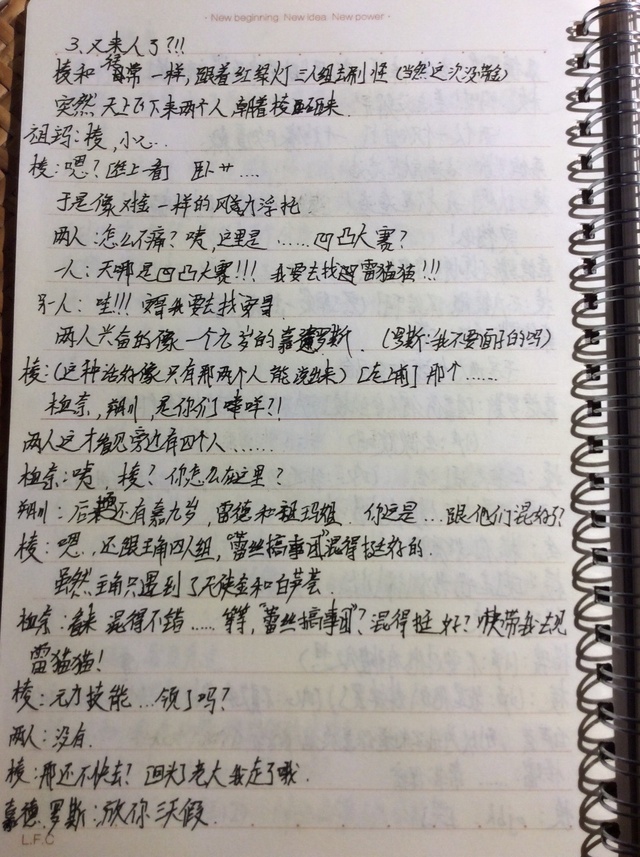 - New beginning. New idea. New power -
3.又来人了?!!
棱和往常一样,跟着红绿灯三人组去刷怪(当然这次没带金)
突然天上飞下来两个人朝着棱砸来
祖玛:棱,小心...
棱:嗯?[往上看] 卧艹....
于是像对金一样的风力浮托
两人:怎么不痛?咦,这里是......凹凸大赛?
一人:天哪是凹凸大赛!!!我要去找雷猫猫!!!
另一人:哇!!!我要去找
两人兴奋的像一个九岁的嘉德罗斯.(罗斯:我不要面子的吗)
棱:(这种话好像只有那两个人能说出来)[走上前]那个......
柤奈,朔川,是你们咩?!
两人这才看见旁边有四个人......
柤奈:咦,棱?你怎么在这里?
朔川:后还有嘉九岁,雷德和祖玛姐.你这是...跟他们混好了?
棱:嗯,还跟主角四人组,"蕾丝搞事团"混得挺好的.
虽然主角只遇到了天使金和白芦荟.
柤奈:看来混得不错......等等,"蕾丝搞事团"?混得挺好?快带我去见
雷猫猫!
棱:元力技能...领了吗?
两人:没有.
棱:那还不快去?回头了老大我走了哦.
嘉德罗斯:放你三天假.
L.F.C